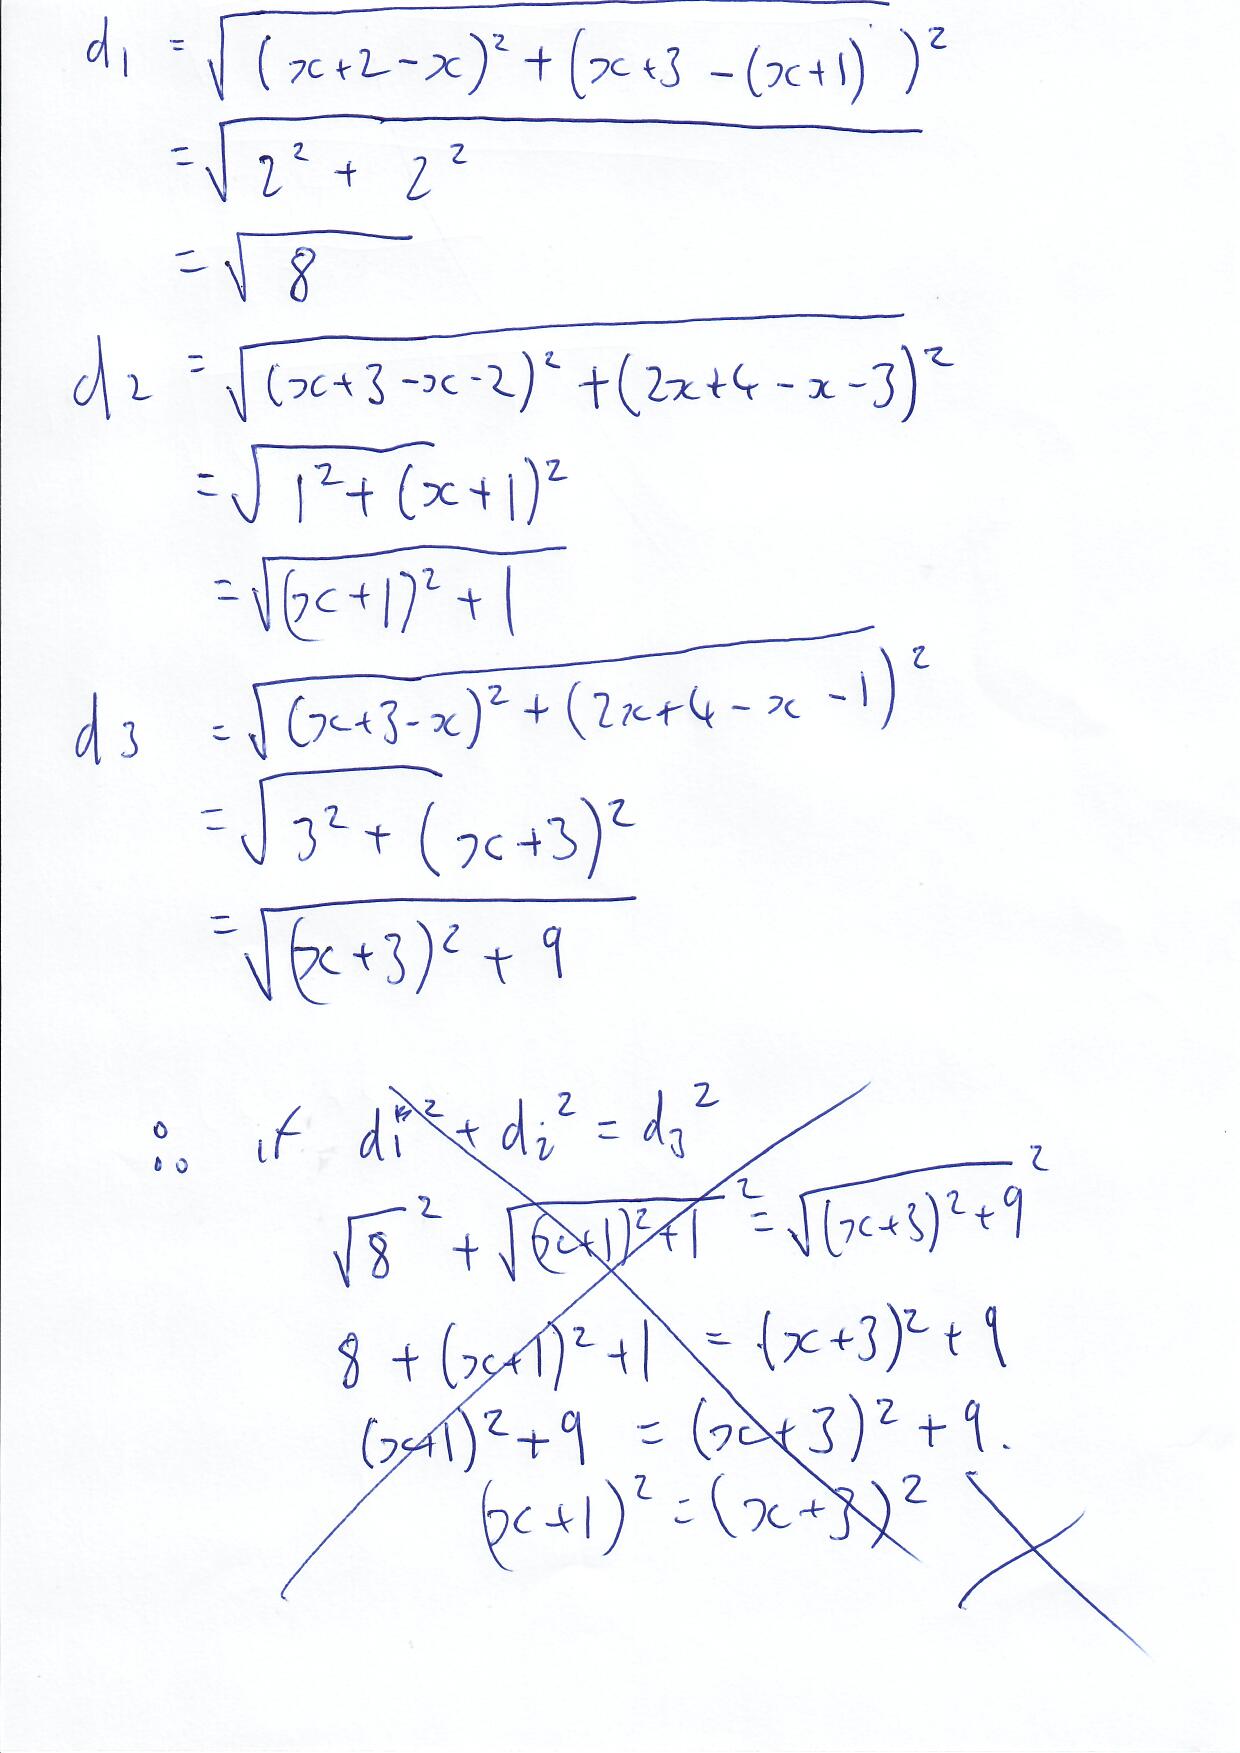 d1 = √(x+2-x)² + (x+3 -(x+1))²
= √2² + 2²
= √8
d2 = √(x+3-x-2)² + (2x+4-x-3)²
= √1² + (x+1)²
= √(x+1)² + 1
d3 = √(x+3-x)² + (2x+4-x-1)²
= √3² + (x+3)²
= √(x+3)² + 9
∴ if d1² + d2² = d3²
√8² + √(x+1)²+1² = √(x+3)²+9²
8 + (x+1)² + 1 = (x+3)² + 9
(x+1)² + 9 = (x+3)² + 9.
(x+1)² = (x+3)²